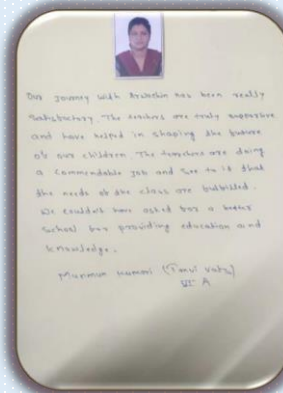 Our journey with Arwachin has been really
satisfactory. The teachers are truly supportive
and have helped in shaping the future
of our children. The teachers are doing
a commendable job and see to it that
the needs of the class are fulfilled.
We couldn't have asked for a better
school for providing education and
knowledge.
Kumari (Tanvi Vats)
VI A